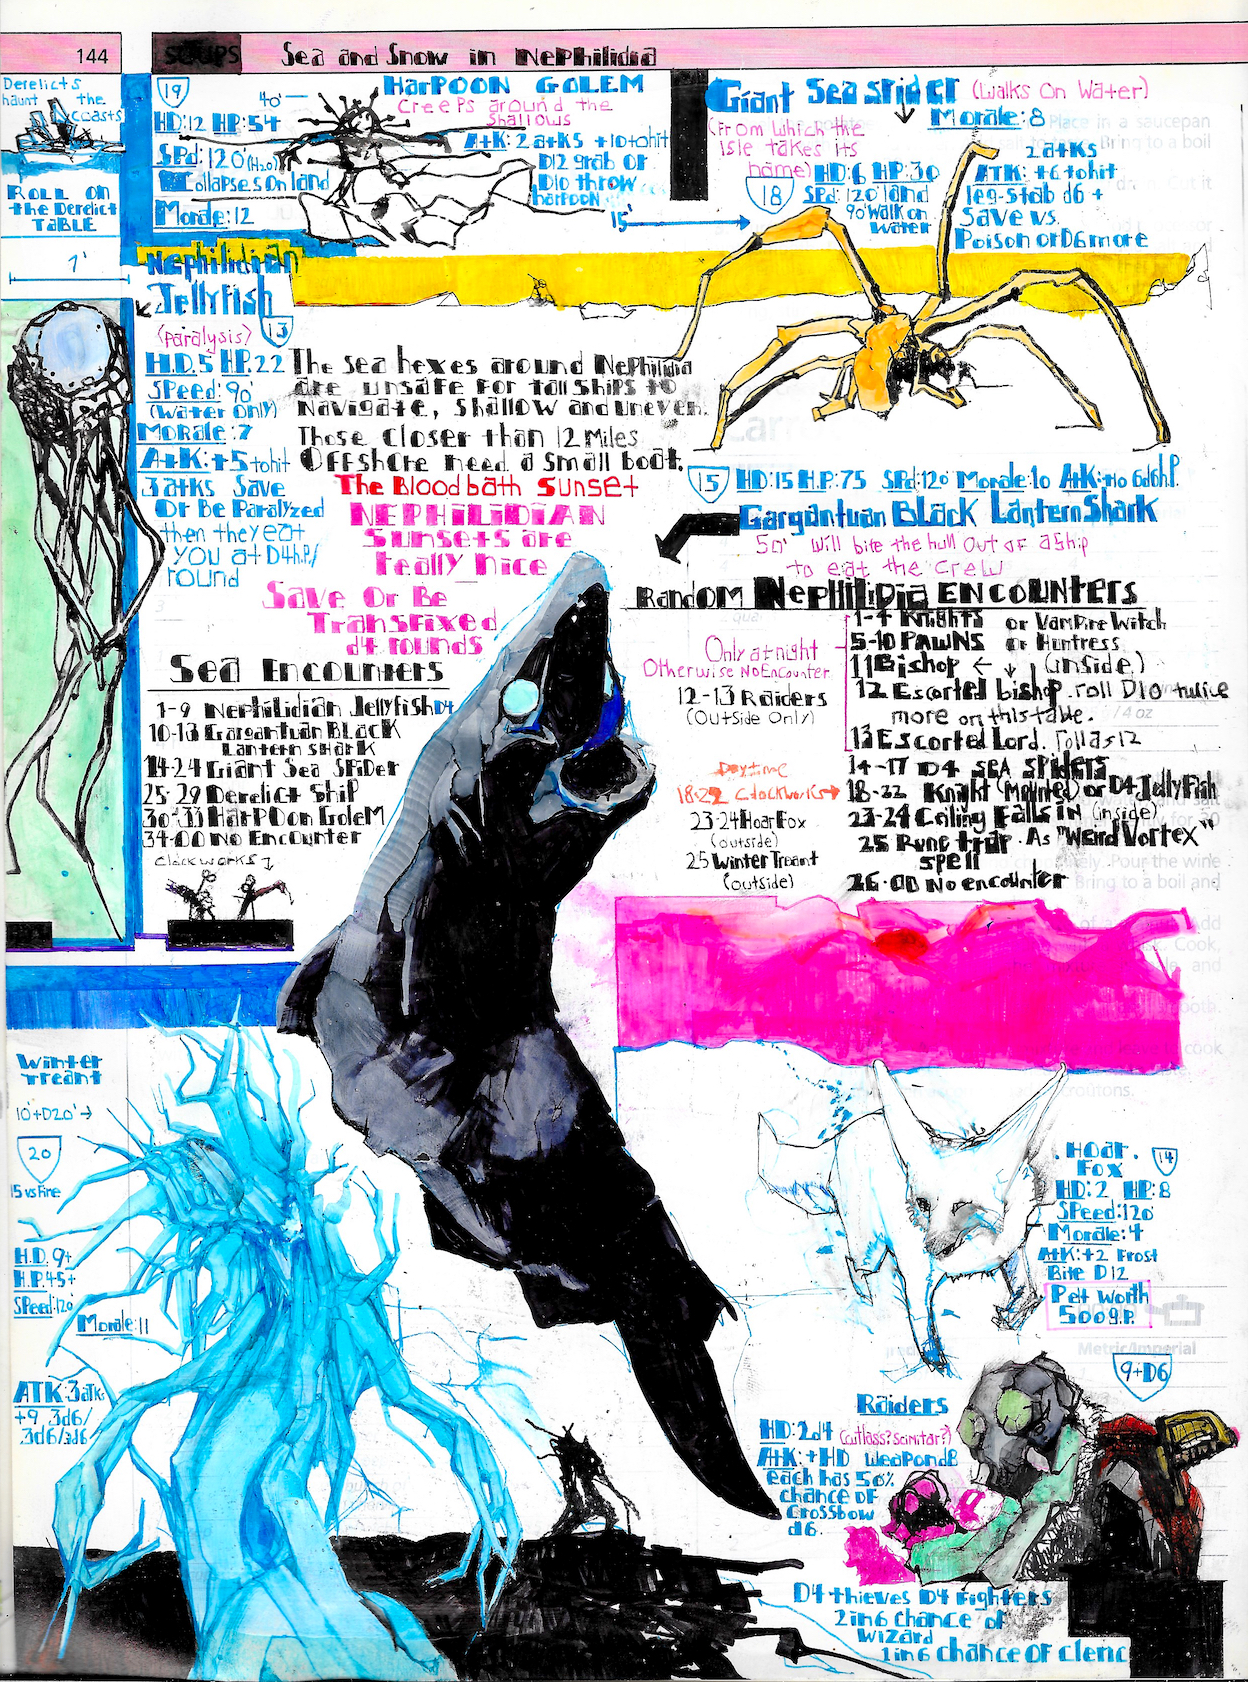 144
SOUPS
Sea and Snow in Nephilidia
Derelicts
haunt the
coasts
ROLL ON
the Derelict
TABLE
1'
19
40'
HARPOON GOLEM
Creeps around the
Shallows
HD:12 HP:54
SPd:120'(H2O)
Collapses on land
Morale:12
Atk: 2 atks +10 tohit
D12 grab or
D10 throw
harpoon
Giant Sea Spider (Walks On Water)
(From which the
Isle takes its
name)
Morale:8
18
HD:6 HP:30
SPd:120' land
90' walk on
water
2 atks
ATK: +6 tohit
leg-stab d6 +
Save vs.
Poison or D6 more
15'
Nephilidian
Jellyfish
(paralysis)
13
H.D.5 HP.22
Speed:90'
(Water Only)
Morale:7
Atk:+5 tohit
3 atks Save
Or Be Paralyzed
then they eat
you at D4 h.p./
round
The sea hexes around Nephilidia
are unsafe for tall ships to
Navigate, Shallow and uneven.
Those closer than 12 Miles
Offshore need a small boat.
The Bloodbath Sunset
NEPHILIDIAN
Sunsets are
really nice
Save Or Be
Transfixed
d4 rounds
15
HD:15 H.P.:75 SPd:120 Morale:10 Atk:+10 6d6h.P.
Gargantuan Black Lantern Shark
50' Will bite the hull out of a ship
to eat the crew
Sea Encounters
1-9 Nephilidian Jellyfish D4
10-13 Gargantuan Black
Lantern Shark
14-24 Giant Sea Spider
25-29 Derelict Ship
30-33 Harpoon Golem
34-00 No Encounter
Clockworks
Random Nephilidia Encounters
Only at night
Otherwise No Encounter
1-4 Knights or Vampire Witch
5-10 Pawns or Huntress
11 Bishop (inside)
12 Escorted bishop. roll D10 twice
more on this table.
13 Escorted Lord. roll as 12
14-17 D4 Sea Spiders
18-22 Knight (Mounted) or D4 Jellyfish
23-24 Ceiling Falls in (inside)
25 Rune trap. As "Weird Vortex"
spell
26-00 No encounter
12-13 Raiders
(Outside Only)
Daytime
18-22 Clockworks
23-24 Hoar Fox
(outside)
25 Winter Treant
(outside)
Winter
Treant
10'+D20'
20
15 vs Fire
H.D. 9+
H.P.45+
Speed:120'
Morale:11
ATK:3 atks
+9 3d6/
3d6/3d6
Hoar
Fox
14
HD:2 HP:8
Speed:120'
Morale:4
Atk:+2 Frost
Bite D12
Pet worth
500 g.p.
Metric/Imperial
Raiders
9+D6
HD:2d4 (cutlass? scimitar?)
Atk:+HD Weapon d8
each has 50%
chance of
Crossbow
d6.
D4 thieves D4 Fighters
2 in 6 chance of
Wizard
1 in 6 chance of cleric
Place in a saucepan
Pour the wine
Bring to a boil and